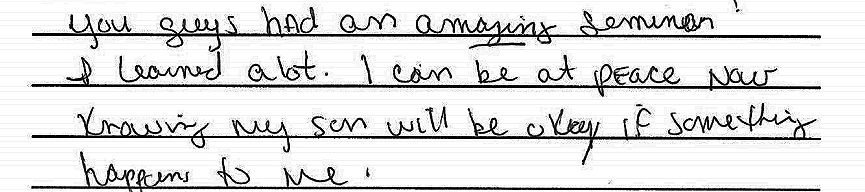 you guys had an amazing seminar!
I learned alot. I can be at peace now
knowing my son will be okay if something
happens to me.